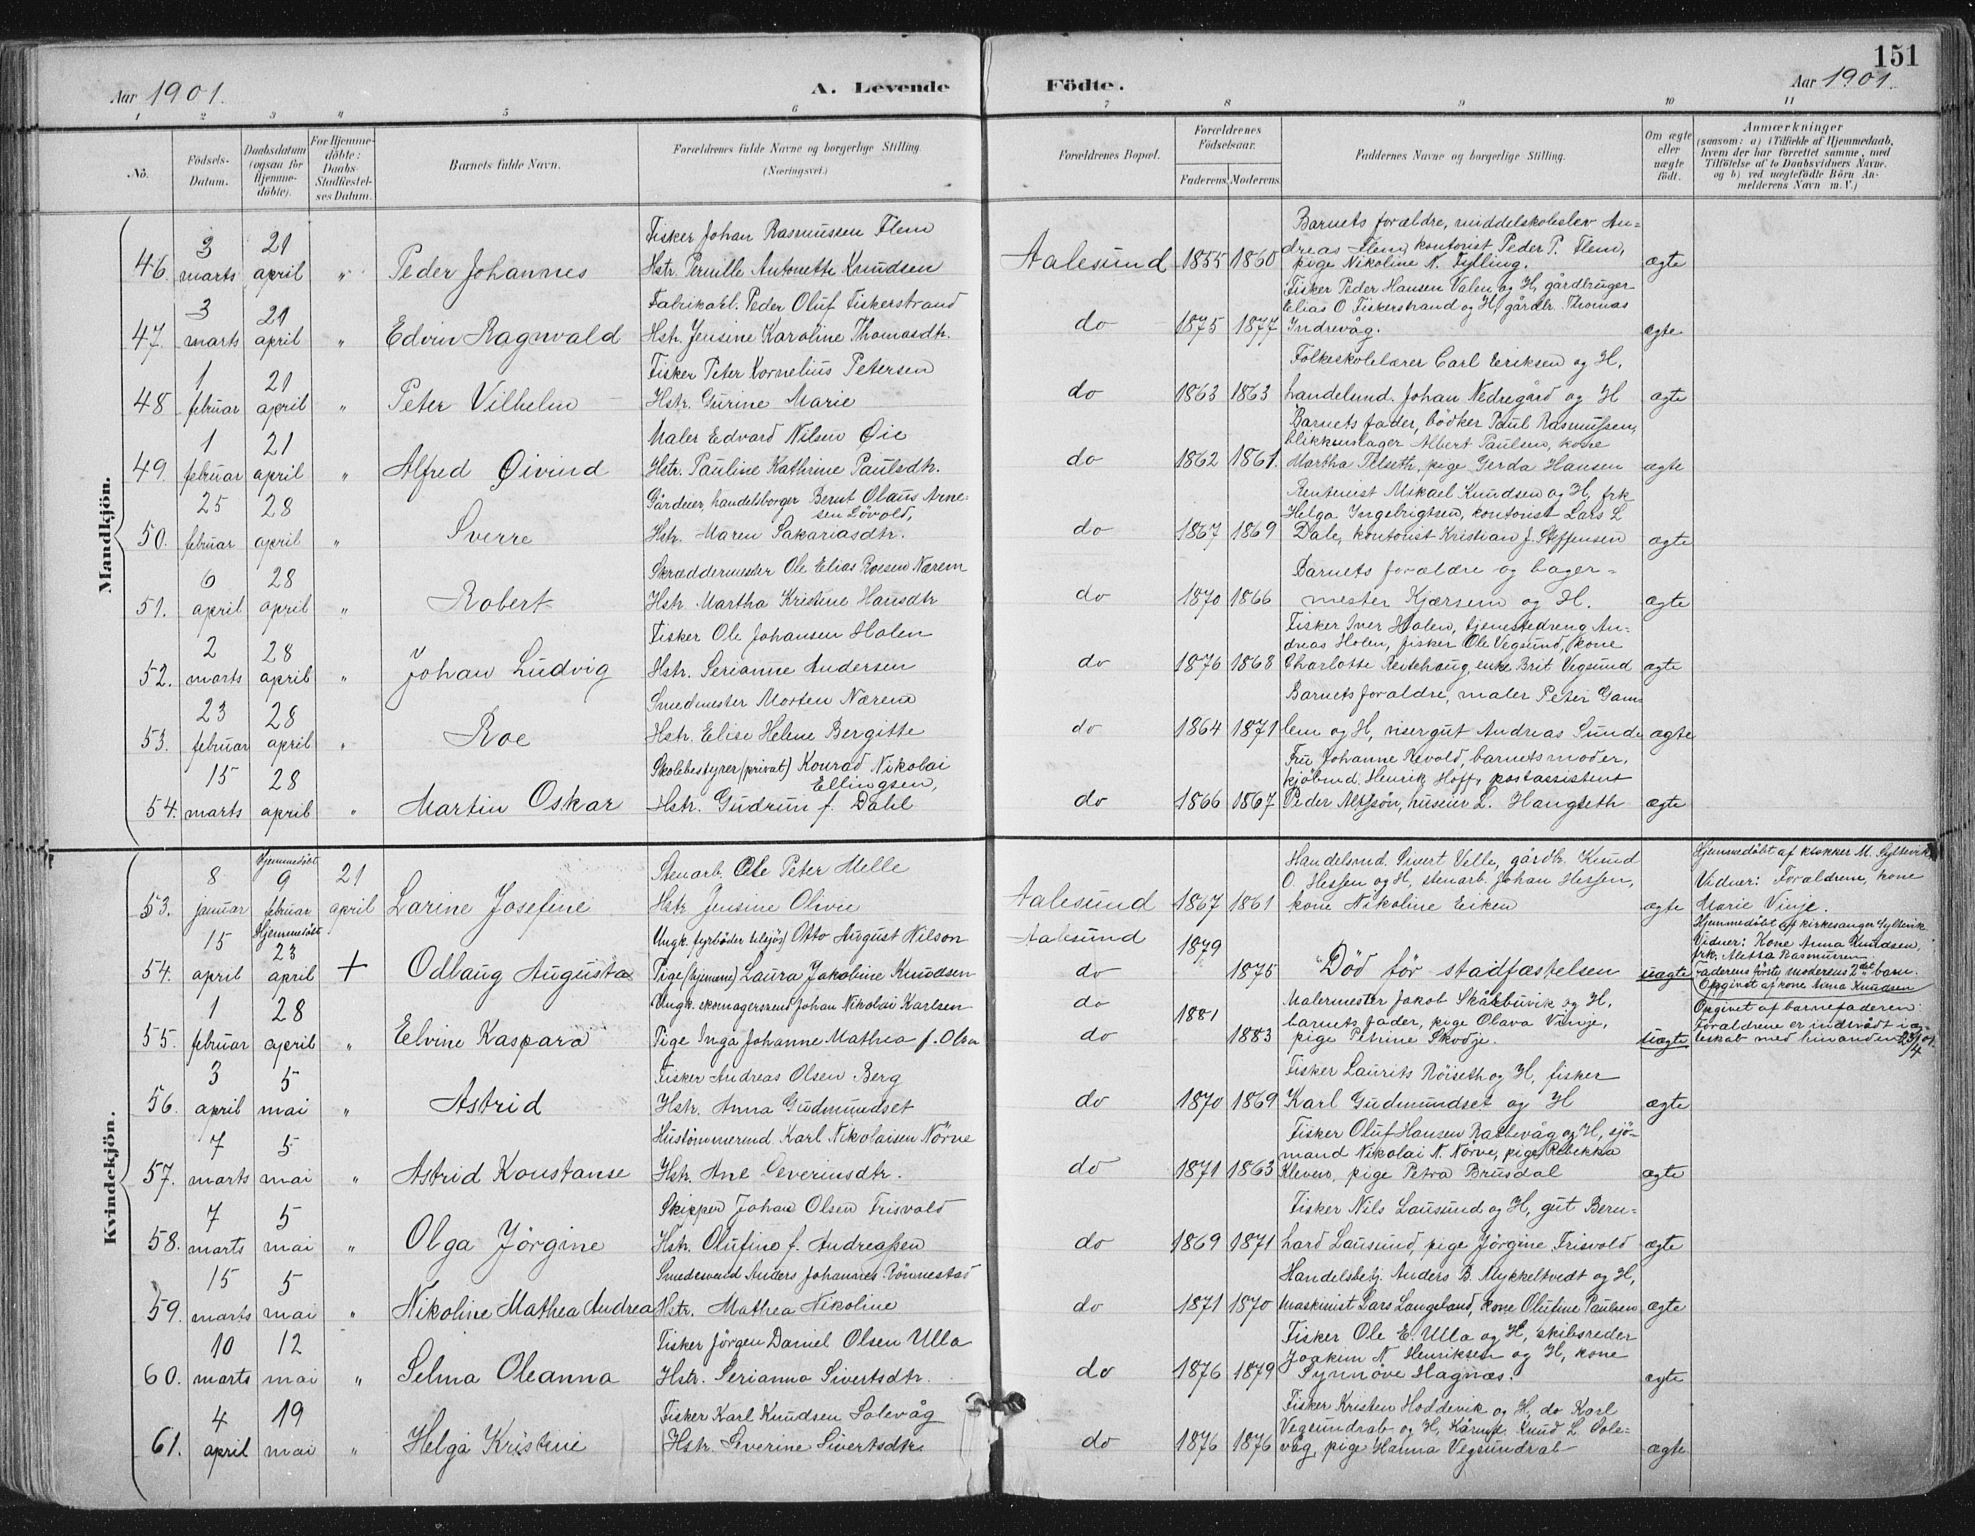 151
Aar 1901.
A. Levende
Födte.
Aar 1901.
1 2 3 4 5 6 7 8 9 10 11
No.
Födsels-Datum.
Daabsdatum (ogsaa for Hjemme-döbte).
For Hjemme-döbte: Daabs-Stadfæstel-ses Datum.
Barnets fulde Navn.
Forældrenes fulde Navne og borgerlige Stilling.
(Næringsvei.)
Forældrenes Bopæl.
Forældrenes Födselsaar.
Faderens. Moderens.
Faddernes Navne og borgerlige Stilling.
Om ægte eller uægte födt.
Anmærkninger
(saasom: a) i Tilfælde af Hjemmedaab,
hvem der har forrettet samme, med
Tilföielse af to Daabsvidners Navne.
og b) ved uægtefödte Börn An-
melderens Navn m. V.)
Mandkjön.
46. 3 marts 21 april " Peder Johannes
Fisker Johan Rasmussen Flem
Hstr. Pernille Antonette Knudsen
Aalesund 1855 1860
Barnets forældre, middelskoleelev An-
dreas Flem, kontorist Peder P. Flem,
pige Nikoline N. Fylling.
ægte
47. 3 marts 21 april " Edvin Ragnvald
Fabrikarb. Peder Oluf Fiskerstrand
Hstr. Jensine Karoline Thomasdtr.
do 1875 1877
Fisker Peder Hansen Valen og H, gårdbruger
Elias O Fiskerstrand og H, gårdbr. Thomas
Indrevåg.
ægte
48 1 februar 21 april " Peter Vilhelm
Fisker Peter Kornelius Petersen
Hstr. Gurine Marie
do 1863 1863
Folkeskolelærer Carl Eriksen og H,
handelsmd. Johan Nedregård og H
ægte
49. 1 februar 21 april " Alfred Øivind
Maler Edvard Nilsen Øie
Hstr. Pauline Kathrine Paulsdtr.
do 1862 1861.
Barnets fader, bödker Paul Rasmussen,
blikkenslager Albert Paulsen, kone
Martha Tilseth, pige Gerda Hansen
ægte
50. 25 februar 28 april " Sverre
Gårdeier, handelsborger Bernt Olaus Arne-
sen Gövold,
Hstr. Maren Sakariasdtr.
do 1867 1869
Rentenist Mikael Knudsen og H, frk
Helga Ingebrigtsen, kontorist Lars L
Dale, kontorist Kristian J. Steffensen
ægte
51. 6 april 28 april " Robert
Skræddermester Ole Elias Roesen Nærem
Hstr. Martha Kristine Hansdtr
do 1870 1866
Barnets forældre og bager-
mester Kjærsem og H.
ægte
52. 2 marts 28 april " Johan Ludvig
Fisker Ole Johansen Holen
Hstr. Serianne Andersen
do 1876 1868
Fisker Iver Holen, tjenestedreng An-
dreas Holen, fisker Ole Vegsund, kone
Charlotte Reitehaug, enke Brit Vegsund
ægte
53. 23 februar 28 april " Roe
Smedmester Morten Nærem
Hstr. Elise Helene Bergitte
do 1864 1871
Barnets forældre, maler Peter Gam-
lem og H, visergut Andreas Sunde
ægte
54. 15 marts 28 april " Martin Oskar
Skolebestyrer (privat) Konrad Nikolai
Ellingsen,
Hstr. Gudrun f. Dahl
do 1866 1867
Fru Johanne Revold, barnets moder,
kjöbmd. Henrik Hoff, postassistent
Peder Alfsön, huseier L. Haugseth
ægte
Kvindekjön.
53. 8 januar Hjemmedöbt 9 februar 21 april Larine Josefine
Stenarb. Ole Peter Melle
Hstr Jensine Olive
Aalesund 1867 1861
Handelsmd. Sivert Velle, gårdb. Knud
O. Hessen og H, stenarb. Johan Hessen,
kone Nikoline Eiken
ægte
Hjemmedöbt af klokker M. Syltevik
Vidner: Forældrene, kone
Marie Vinje.
54. 15 april Hjemmedöbt 23 april + Odbaug Augusta
Ungk. fyrböder tilsjös Otto August Nilson
Pige (hjemme) Laura Jakobine Knudsen
Aalesund 1879
do 1875
Död för stadfæstelsen
uægte
Hjemmedöbt af kirkesanger Syltevik
Vidner: Kone Anna Knudsen,
frk. Aletta Rasmussen
Faderens förste moderens 2det barn.
Opgivet af kone Anna Knudsen
55. 1 februar 28 april " Elvine Kaspara
Ungk. skomagersvend Johan Nikolai Karlsen
Pige Inga Johanne Mathea f. Olsen
do 1881
do 1883
Malermester Jakob Skårbuvik og H,
barnets fader, pige Olava Vinje,
pige Petrine Skodje.
uægte
Opgivet af barnefaderen
Forældrene er indtrådt i æg-
teskab med hinanden 23/4 01.
56. 3 april 5 mai " Astrid
Fisker Andreas Olsen Berg
Hstr. Anna Gudmundset
do 1870 1869
Fisker Laurits Röiseth og H, fisker
Karl Gudmundset og H
ægte
57. 7 marts 5 mai " Astrid Konstanse
Hustömmermd. Karl Nikolaisen Nörve
Hstr. Ane Severinsdtr.
do 1871 1863
Fisker Oluf Hansen Rabbevåg og H, sjö-
mand Nikolai N. Nörve, pige Rebekka
Kleven, pige Petra Brusdal
ægte
58. 7 marts 5 mai " Olga Jörgine
Skipper Johan Olsen Frisvold
Hstr. Olufine f. Andreassen
do 1869 1871
Fisker Nils Lausund og H, gut Bern-
hard Lausund, pige Jörgine Frisvold
ægte
59. 15 marts 5 mai " Nikoline Mathea Andrea
Smedesvend Anders Johannes Rönnestad
Hstr. Mathea Nikoline
do 1871 1870
Handelsbetj. Anders B. Mykkeltvedt og H,
maskinist Lars Langeland, kone Olufine Paulsen
ægte
60. 10 marts 12 mai " Selma Oleanna
Fisker Jörgen Daniel Olsen Ulla
Hstr. Serianna Sivertsdtr.
do 1876 1879
Fisker Ole E. Ulla og H, skibsreder
Joakim N. Henriksen og H, kone
Synnöve Hagnæs.
ægte
61. 4 april 19 mai " Helga Kristine
Fisker Karl Knudsen Solevåg
Hstr. Severine Sivertsdtr.
do 1876 1876
Fisker Kristen Hoddevik og H, do Karl
Vegsundrab og H, Kårmd. Knud L Sole-
våg, pige Hanna Vegsundral
ægte